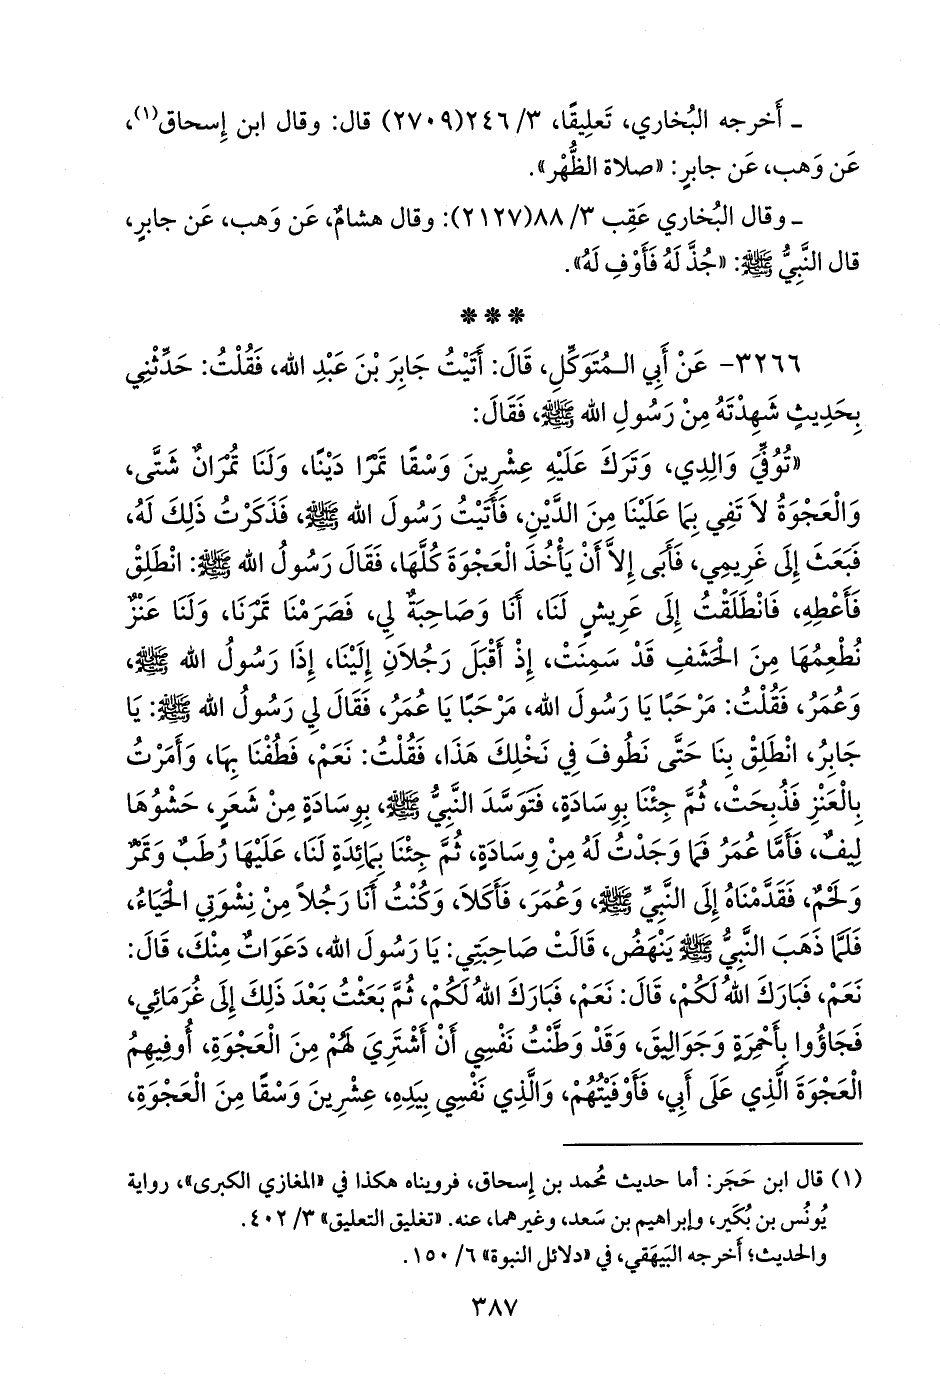 ـ أَخرجه البُخاري، تَعلِيقًا، ٣/ ٢٤٦(٢٧٠٩) قال: وقال ابن إِسحاق(١)،
عَن وَهب، عَن جابرٍ: «صلاة الظُّهْر».
ـ وقال البُخاري عَقِب ٣/ ٨٨(٢١٢٧): وقال هشامٌ، عَن وَهب، عَن جابرٍ،
قال النَّبِيُّ ﷺ: «جُذَّ لَهُ فَأَوْفِ لَهُ».
***
٣٢٦٦- عَنْ أَبِي الـمُتَوَكِّلِ، قَالَ: أَتَيْتُ جَابِرَ بْنَ عَبْدِ الله، فَقُلْتُ: حَدِّثْنِي
بِحَدِيثٍ شَهِدْتَهُ مِنْ رَسُولِ الله ﷺ، فَقَالَ:
«تُوُفِّيَ وَالِدِي، وَتَرَكَ عَلَيْهِ عِشْرِينَ وَسْقًا تَمْرًا دَيْنًا، وَلَنَا تُمْرَانٌ شَتَّى،
وَالْعَجْوَةُ لاَ تَفِي بِمَا عَلَيْنَا مِنَ الدَّيْنِ، فَأَتَيْتُ رَسُولَ الله ﷺ، فَذَكَرْتُ ذَلِكَ لَهُ،
فَبَعَثَ إِلَى غَرِيمِي، فَأَبَى إِلاَّ أَنْ يَأْخُذَ الْعَجْوَةَ كُلَّهَا، فَقَالَ رَسُولُ الله ﷺ: انْطَلِقْ
فَأَعْطِهِ، فَانْطَلَقْتُ إِلَى عَرِيشٍ لَنَا، أَنَا وَصَاحِبَةٌ لِي، فَصَرَمْنَا تَمْرَنَا، وَلَنَا عَنْزٌ
نُطْعِمُهَا مِنَ الْحَشَفِ قَدْ سَمِنَتْ، إِذْ أَقْبَلَ رَجُلاَنِ إِلَيْنَا، إِذَا رَسُولُ الله ﷺ،
وَعُمَرُ، فَقُلْتُ: مَرْحَبًا يَا رَسُولَ الله، مَرْحَبًا يَا عُمَرُ، فَقَالَ لِي رَسُولُ الله ﷺ: يَا
جَابِرُ، انْطَلِقْ بِنَا حَتَّى نَطُوفَ فِي نَخْلِكَ هَذَا، فَقُلْتُ: نَعَمْ، فَطُفْنَا بِهَا، وَأَمَرْتُ
بِالْعَنْزِ فَذُبِحَتْ، ثُمَّ جِئْنَا بِوِسَادَةٍ، فَتَوَسَّدَ النَّبِيُّ ﷺ، بِوِسَادَةٍ مِنْ شَعَرٍ، حَشْوُهَا
لِيفٌ، فَأَمَّا عُمَرُ فَمَا وَجَدْتُ لَهُ مِنْ وِسَادَةٍ، ثُمَّ جِئْنَا بِمَائِدَةٍ لَنَا، عَلَيْهَا رُطَبٌ وَتَمْرٌ
وَلَحْمٌ، فَقَدَّمْنَاهُ إِلَى النَّبِيِّ ﷺ، وَعُمَرَ، فَأَكَلاَ، وَكُنْتُ أَنَا رَجُلاً مِنْ نِشْوَتِي الْحَيَاءُ،
فَلَمَّا ذَهَبَ النَّبِيُّ ﷺ يَنْهَضُ، قَالَتْ صَاحِبَتِي: يَا رَسُولَ الله، دَعَوَاتٌ مِنْكَ، قَالَ:
نَعَمْ، فَبَارَكَ اللهُ لَكُمْ، قَالَ: نَعَمْ، فَبَارَكَ اللهُ لَكُمْ، ثُمَّ بَعَثْتُ بَعْدَ ذَلِكَ إِلَى غُرَمَائِي،
فَجَاؤُوا بِأَحْمِرَةٍ وَجَوَالِيقَ، وَقَدْ وَطَّنْتُ نَفْسِي أَنْ أَشْتَرِيَ لَهُمْ مِنَ الْعَجْوَةِ، أُوفِيهِمُ
الْعَجْوَةَ الَّذِي عَلَى أَبِي، فَأَوْفَيْتُهُمْ، وَالَّذِي نَفْسِي بِيَدِهِ، عِشْرِينَ وَسْقًا مِنَ الْعَجْوَةِ،
(١) قال ابن حَجَر: أما حديث مُحمد بن إِسحاق، فرويناه هكذا في «المغازي الكبرى»، رواية
يُونُس بن بُكَير، وإبراهيم بن سَعد، وغيرهما، عنه. «تغليق التعليق» ٣/ ٤٠٢.
والحديث؛ أَخرجه البَيهَقي، في «دلائل النبوة» ٦/ ١٥٠.
٣٨٧